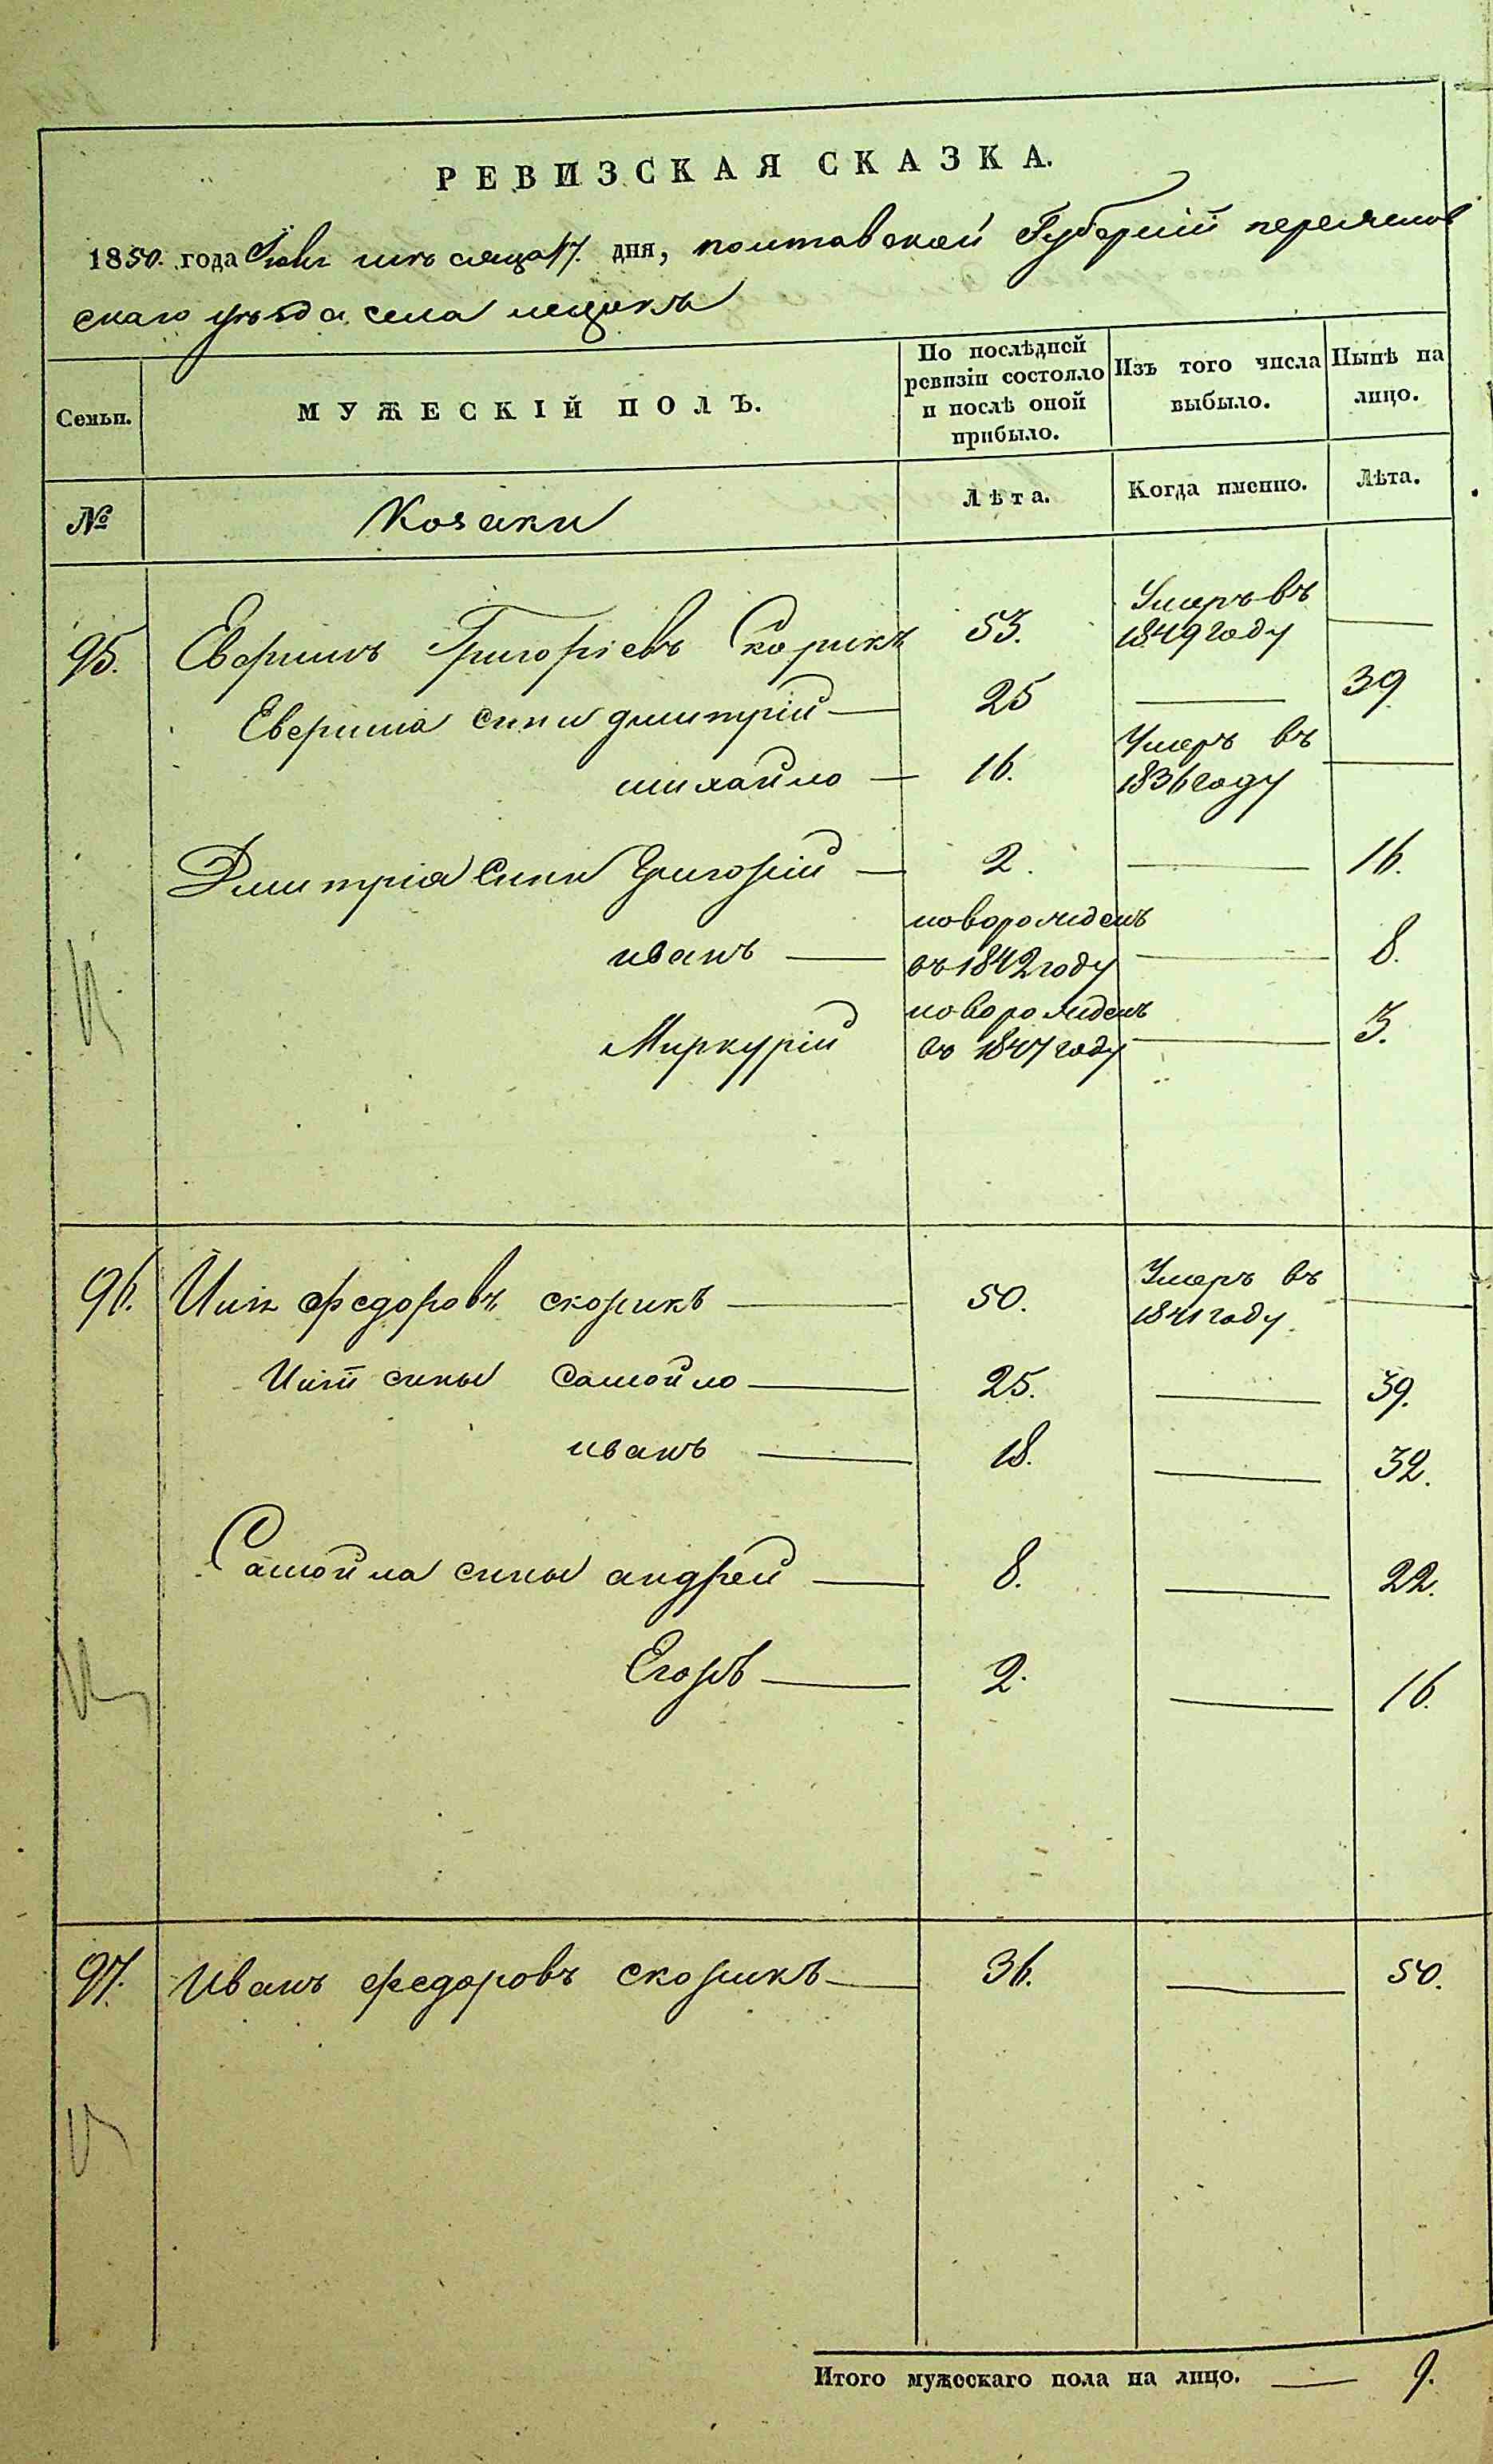 РЕВИЗСКАЯ СКАЗКА.
1850. года Июня мѣсяца 17. дня, полтавской Губернии переяслов
скаго уѣзда села лецокъ
Семьи.
МУЖЕСКІЙ ПОЛЪ.
По послѣдней ревизіи состояло и послѣ оной прибыло.
Изъ того числа выбыло.
Нынѣ на лицо.
№
Козаки
Лѣта.
Когда именно.
Лѣта.
95. Григоріевъ Скорикъ 53. Умеръ въ 1849 году —
сини дмитрій — 25 — 39
михайло — 16. Умеръ въ 1836 году —
Дмитрія сини Григорій — 2. — 16.
иванъ — новорожденъ въ 1842 году — 8.
Миркурій новорожденъ въ 1847 году — 3.
96. федоровъ скорикъ — 50. Умеръ въ 1841 году. —
сины самойло — 25. — 39.
иванъ — 18. — 32.
Самойла сины андрей — 8. — 22.
Егоръ — 2. — 16.
97. Иванъ федоровъ скорикъ — 36. — 50.
Итого мужескаго пола на лицо. — 9.